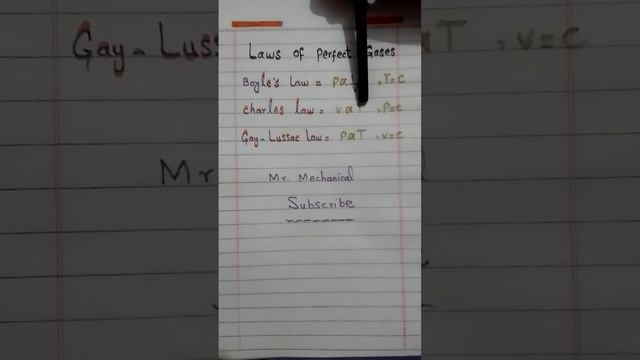 Laws of Perfect Gases
Boyle's Law = P α 1/ , T=C
Charles Law = V α T , P=C
Gay-Lussac Law = P α T , V=C
Mr. Mechanical
Subscribe
Gay-Luss
αT , V=C
Mr.